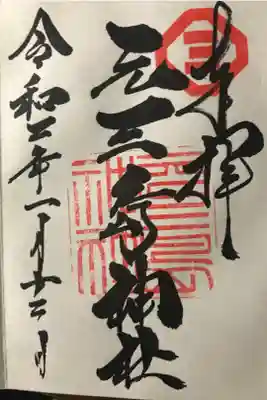 奉拝
三
元三島神社
令和二年一月十二日